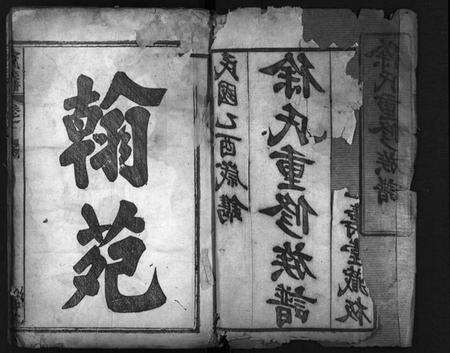 徐氏重修族譜
民國乙酉歲鐫
徐氏重修族譜
堂藏板
翰苑